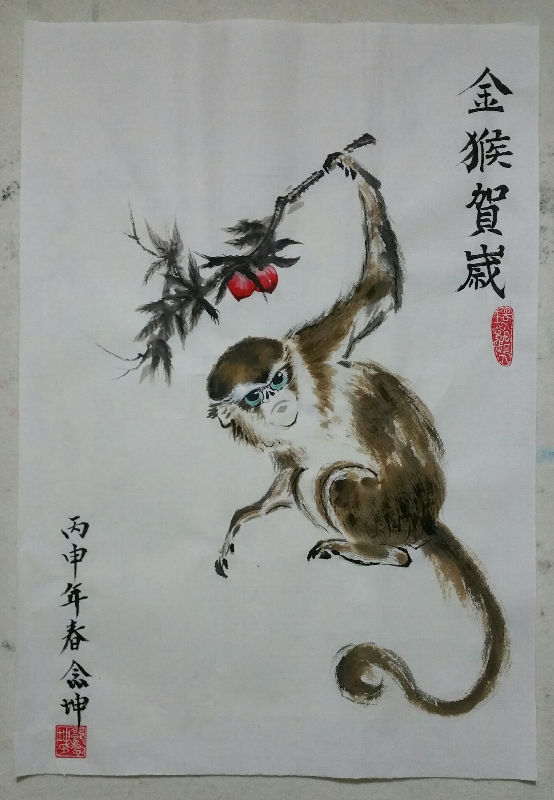 金猴賀歲
丙申年春念坤